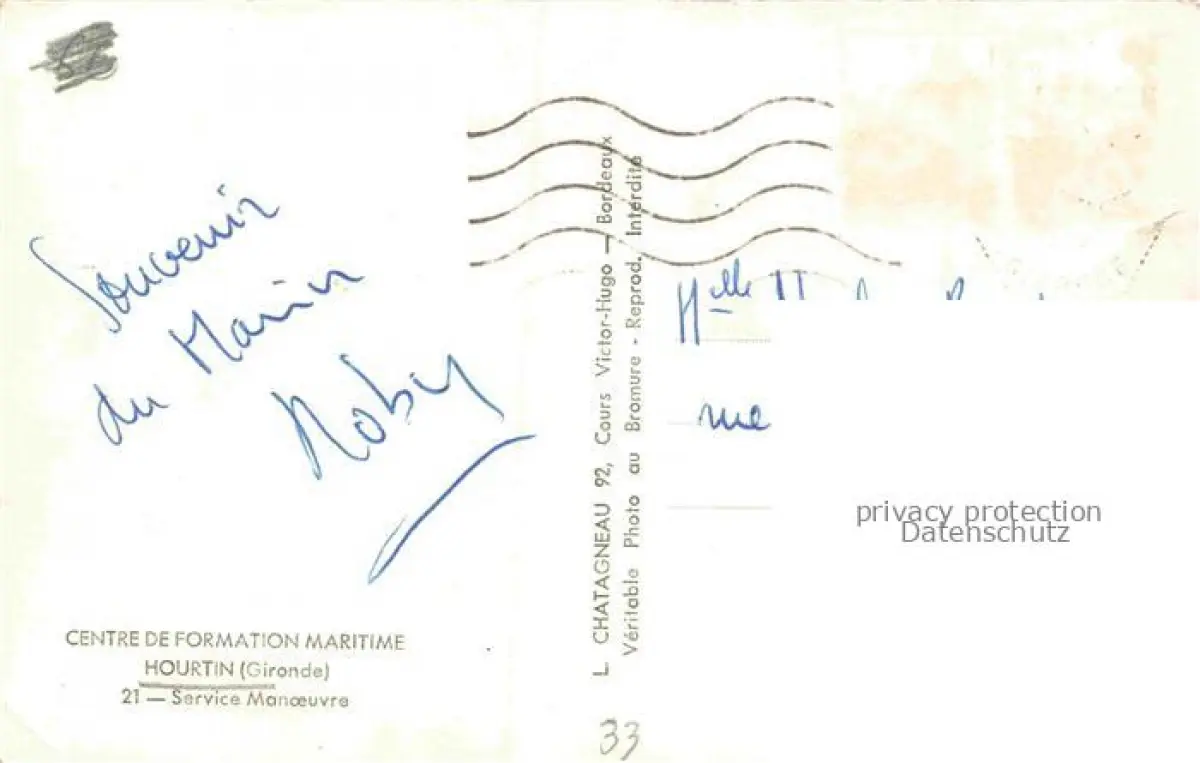 Souvenir
du Marin
CENTRE DE FORMATION MARITIME
HOURTIN (Gironde)
21 — Service Manœuvre
L. CHATAGNEAU 92, Cours Victor-Hugo — Bordeaux
Véritable Photo au Bromure - Reprod. Interdite
33
Melle
rue
privacy protection
Datenschutz